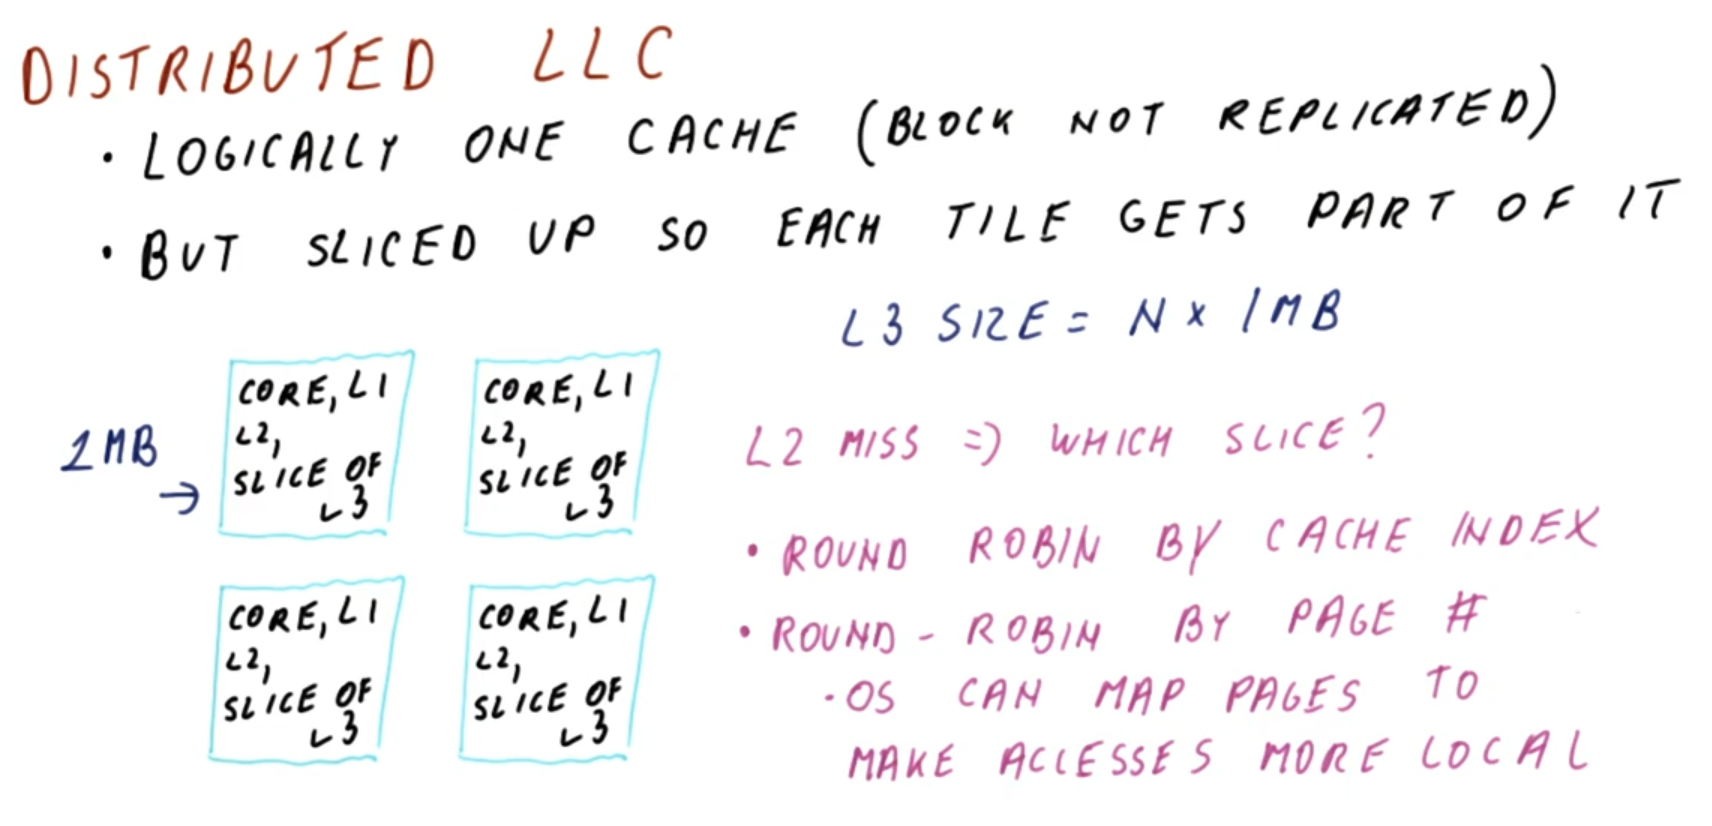 DISTRIBUTED LLC
• LOGICALLY ONE CACHE (BLOCK NOT REPLICATED)
• BUT SLICED UP SO EACH TILE GETS PART OF IT
L3 SIZE = N × 1MB
1MB →
CORE, L1
L2,
SLICE OF
L3
CORE, L1
L2,
SLICE OF
L3
CORE, L1
L2,
SLICE OF
L3
CORE, L1
L2,
SLICE OF
L3
L2 MISS => WHICH SLICE?
• ROUND ROBIN BY CACHE INDEX
• ROUND-ROBIN BY PAGE #
• OS CAN MAP PAGES TO
MAKE ACCESSES MORE LOCAL